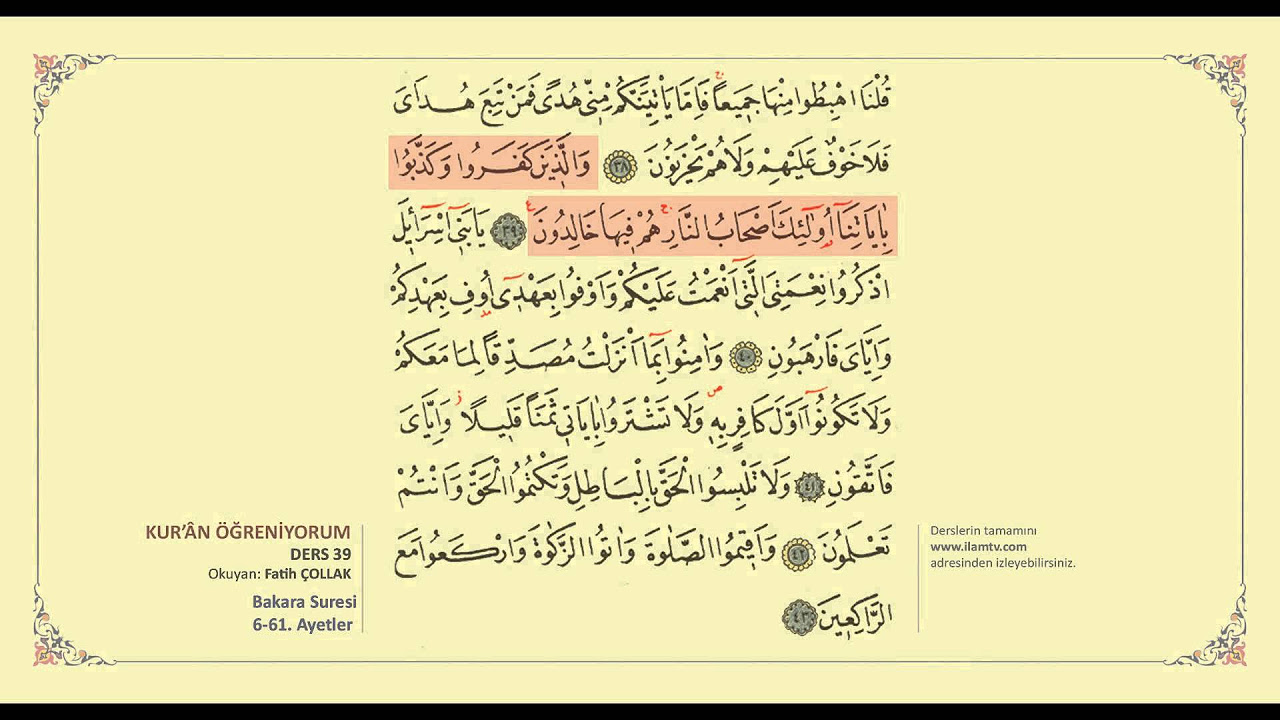 قُلْنَا اهْبِطُوا مِنْهَا جَمٖيعًاۚ فَاِمَّا يَأْتِيَنَّكُمْ مِنّٖى هُدًى فَمَنْ تَبِعَ هُدَاىَ
فَلَا خَوْفٌ عَلَيْهِمْ وَلَا هُمْ يَحْزَنُونَ ﴿٣٨﴾ وَالَّذٖينَ كَفَرُوا وَكَذَّبُوا
بِاٰيَاتِنَٓا اُو۬لٰٓئِكَ اَصْحَابُ النَّارِۚ هُمْ فٖيهَا خَالِدُونَ ﴿٣٩﴾ يَا بَنٖٓى اِسْرَٓائٖلَ
اذْكُرُوا نِعْمَتِىَ الَّتٖٓى اَنْعَمْتُ عَلَيْكُمْ وَاَوْفُوا بِعَهْدٖٓى اُو۫فِ بِعَهْدِكُمْ
وَاِيَّاىَ فَارْهَبُونِ ﴿٤٠﴾ وَاٰمِنُوا بِمَٓا اَنْزَلْتُ مُصَدِّقًا لِمَا مَعَكُمْ
وَلَا تَكُونُٓوا اَوَّلَ كَافِرٍ بِهٖۖ وَلَا تَشْتَرُوا بِاٰيَاتٖى ثَمَنًا قَلٖيلًاؗ وَاِيَّاىَ
فَاتَّقُونِ ﴿٤١﴾ وَلَا تَلْبِسُوا الْحَقَّ بِالْبَاطِلِ وَتَكْتُمُوا الْحَقَّ وَاَنْتُمْ
تَعْلَمُونَ ﴿٤٢﴾ وَاَقٖيمُوا الصَّلٰوةَ وَاٰتُوا الزَّكٰوةَ وَارْكَعُوا مَعَ
الرَّاكِعٖينَ ﴿٤٣﴾
KUR’ÂN ÖĞRENİYORUM
DERS 39
Okuyan: Fatih ÇOLLAK
Bakara Suresi
6-61. Ayetler
Derslerin tamamını
www.ilamtv.com
adresinden izleyebilirsiniz.